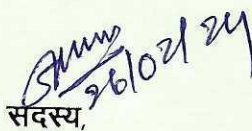 26/02/24
सदस्य,